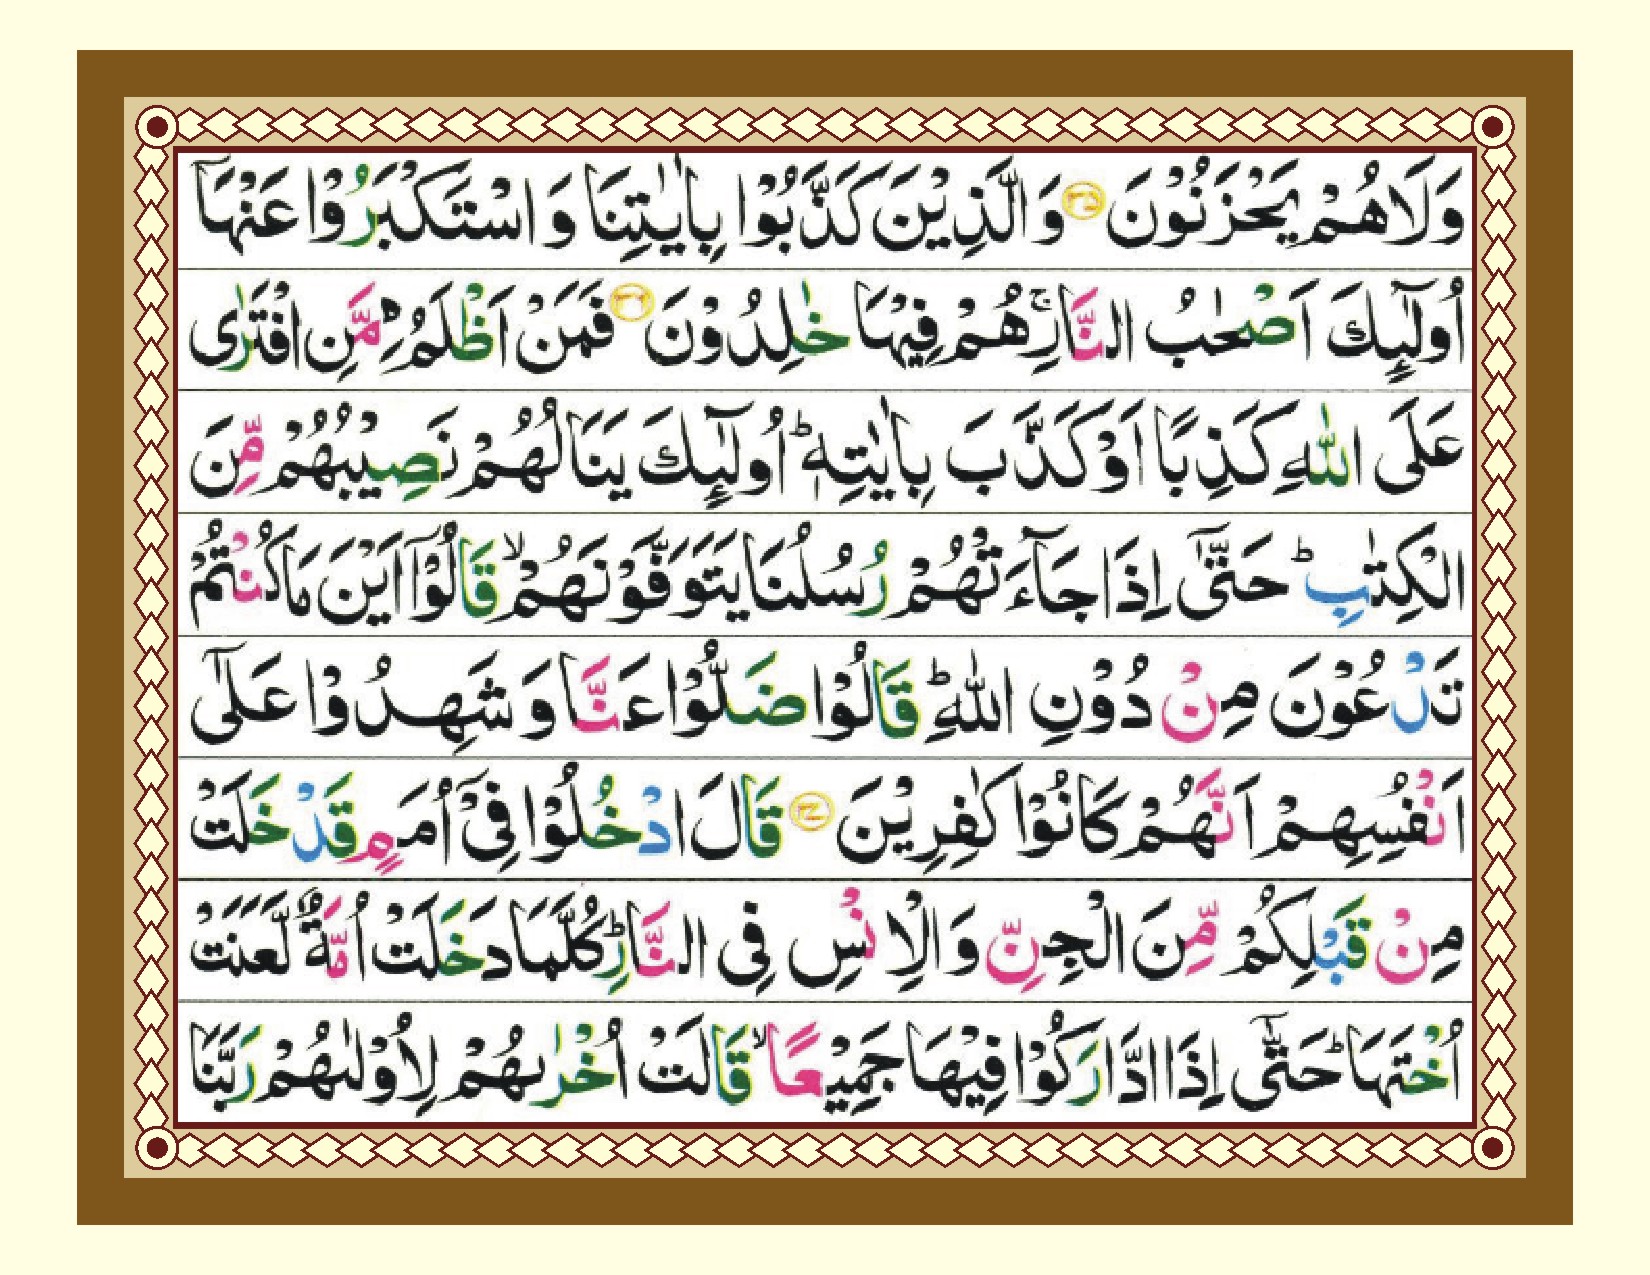 وَلَا هُمْ يَحْزَنُوْنَ ﴿۳۵﴾ وَ الَّذِيْنَ كَذَّبُوْا بِاٰيٰتِنَا وَ اسْتَكْبَرُوْا عَنْهَاۤ
اُولٰٓئِكَ اَصْحٰبُ النَّارِ ۚ هُمْ فِيْهَا خٰلِدُوْنَ ﴿۳۶﴾ فَمَنْ اَظْلَمُ مِمَّنِ افْتَرٰى
عَلَى اللّٰهِ كَذِبًا اَوْ كَذَّبَ بِاٰيٰتِهٖ ؕ اُولٰٓئِكَ يَنَالُهُمْ نَصِيْبُهُمْ مِّنَ
الْكِتٰبِ ؕ حَتّٰۤى اِذَا جَآءَتْهُمْ رُسُلُنَا يَتَوَفَّوْنَهُمْ ۙ قَالُوْۤا اَيْنَ مَا كُنْتُمْ
تَدْعُوْنَ مِنْ دُوْنِ اللّٰهِ ؕ قَالُوْا ضَلُّوْا عَنَّا وَ شَهِدُوْا عَلٰۤى
اَنْفُسِهِمْ اَنَّهُمْ كَانُوْا كٰفِرِيْنَ ﴿۳۷﴾ قَالَ ادْخُلُوْا فِيْۤ اُمَمٍ قَدْ خَلَتْ
مِنْ قَبْلِكُمْ مِّنَ الْجِنِّ وَ الْاِنْسِ فِى النَّارِ ؕ كُلَّمَا دَخَلَتْ اُمَّةٌ لَّعَنَتْ
اُخْتَهَا ؕ حَتّٰۤى اِذَا ادَّارَكُوْا فِيْهَا جَمِيْعًا ۙ قَالَتْ اُخْرٰىهُمْ لِاُوْلٰىهُمْ رَبَّنَا